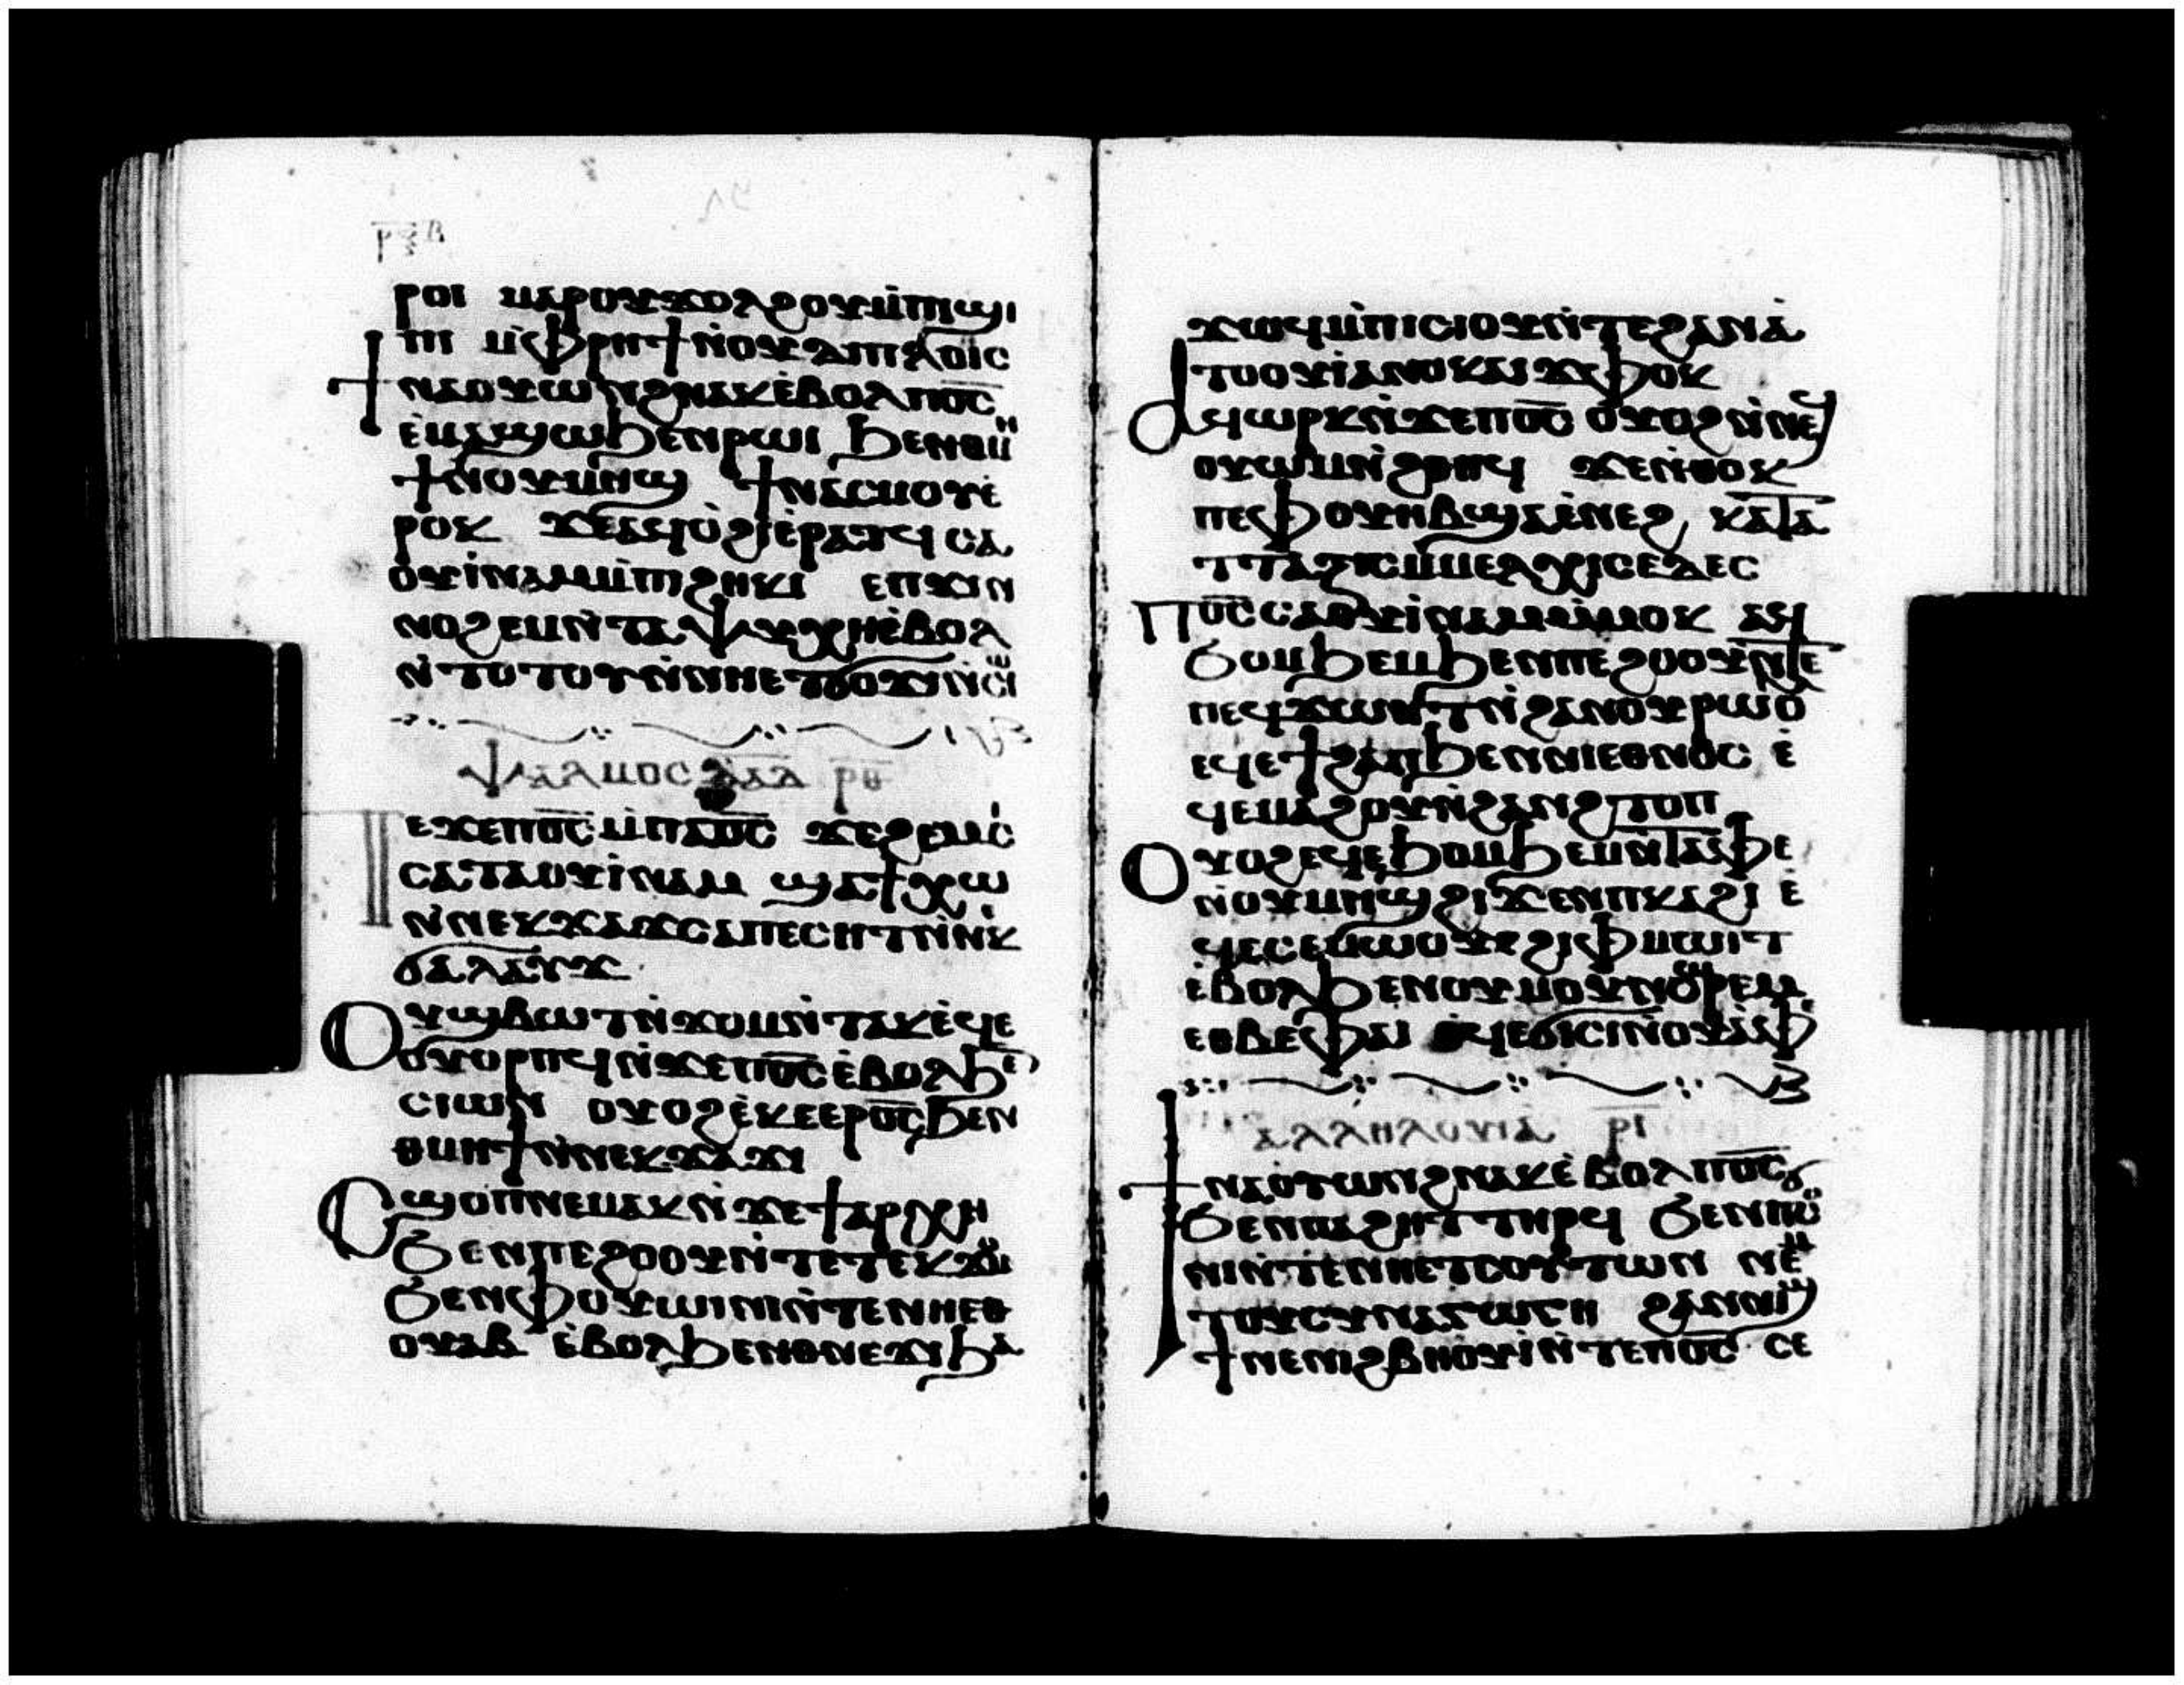 ⲣⲝⲃ
ⲣⲟⲓ ⲙⲁⲣⲟⲩϫⲟⲗϩⲟⲩⲙ̀ⲡⲓϣⲓ
ⲡⲓ ⲙ̀ⲫⲣⲏϯⲛ̀ⲟⲩⲇⲓⲡⲗⲟⲓⲥ
ϯⲛⲁⲟⲩⲱⲛϩⲛⲁⲕⲉ̀ⲃⲟⲗⲡⲟ̅ⲥ̅
ⲉ̀ⲙⲁϣⲱϧⲉⲛⲣⲱⲓ ϧⲉⲛⲑⲙ
ϯⲛ̀ⲟⲩⲙⲏϣ ϯⲛⲁⲥⲙⲟⲩⲉ̀
ⲣⲟⲕ ϫⲉⲁϥⲟ̀ϩⲓⲉ̀ⲣⲁⲧϥ ⲥⲁ
ⲟⲩⲓ̀ⲛⲁⲙⲙ̀ⲡⲓϩⲏⲕⲓ ⲉⲡϫⲓⲛ
ⲛⲟϩⲉⲙⲛ̀ⲧⲁⲯⲩⲭⲏⲉ̀ⲃⲟⲗ
ⲛ̀ⲧⲟⲧⲟⲩⲛ̀ⲛⲏⲉⲧϭⲟϫⲓⲛ̀ⲥⲱⲓ
ⲯⲁⲗⲙⲟⲥ ⲇⲁⲇ ⲣⲑ
ⲡⲉϫⲉⲡⲟ̅ⲥ̅ⲙ̀ⲡⲁⲟ̅ⲥ̅ ϫⲉϩⲉⲙⲥ
ⲥⲁⲧⲁⲟⲩⲓ̀ⲛⲁⲙ ϣⲁϯⲭⲱ
ⲛ̀ⲛⲉⲕϫⲁϫⲥⲁⲡⲉⲥⲏⲧⲛ̀ⲛⲕ
ϭⲁⲗⲁⲩϫ
ⲟⲩϣⲃⲱⲧⲛ̀ϫⲟⲙⲛ̀ⲧⲁⲕⲉ̀ϥⲉ
ⲟⲩⲟⲣⲡϥⲛ̀ϫⲉⲡⲟ̅ⲥ̅ⲉ̀ⲃⲟⲗϧⲉ
ⲥⲓⲱⲛ ⲟⲩⲟϩⲉ̀ⲕⲉⲉⲣⲟ̅ⲥ̅ϧⲉⲛ
ⲑⲙⲏϯⲛ̀ⲛⲉⲕϫⲁϫⲓ
ⲥϣⲟⲡⲛⲉⲙⲁⲕⲛ̀ϫⲉϯⲁⲣⲭⲏ
ϧⲉⲛⲡⲉϩⲟⲟⲩⲛ̀ⲧⲉⲧⲉⲕϫⲟⲙ
ϧⲉⲛⲫⲟⲩⲱⲓⲛⲓⲛ̀ⲧⲉⲛⲏⲉⲑ
ⲟⲩⲁⲃ ⲉ̀ⲃⲟⲗϧⲉⲛⲑⲛⲉϫⲓϧⲁ
ϫⲱϥⲙ̀ⲡⲓⲥⲓⲟⲩⲛ̀ⲧⲉϩⲁⲛⲁ̀
ⲧⲟⲟⲩⲓ̀ⲁⲛⲟⲕⲁⲓϫⲫⲟⲕ
ⲁϥⲱⲣⲕⲛ̀ϫⲉⲡⲟ̅ⲥ̅ ⲟⲩⲟϩⲛ̀ⲛⲉϥ
ⲟⲩⲱⲙⲛ̀ϩⲑⲏϥ ϫⲉⲛ̀ⲑⲟⲕ
ⲡⲉⲫⲟⲩⲏⲃϣⲁⲉ̀ⲛⲉϩ ⲕⲁⲧⲁ
ⲧⲧⲁⲝⲓⲥⲙ̀ⲙⲉⲗⲭⲓⲥⲉⲇⲉⲥ
ⲡⲟ̅ⲥ̅ⲥⲁⲟⲩⲓ̀ⲛⲁⲙⲙ̀ⲙⲟⲕ ⲁϥ
ϧⲟⲙϧⲉⲙϧⲉⲛⲡⲉϩⲟⲟⲩⲛ̀ⲧⲉ
ⲡⲉϥϫⲱⲛⲧⲛ̀ϩⲁⲛⲟⲩⲣⲱⲟⲩ
ⲉϥⲉϯϩⲁⲡϧⲉⲛⲛⲓⲉⲑⲛⲟⲥ ⲉ̀
ϥⲉⲙⲁϩⲟⲩⲛ̀ϩⲁⲛϩⲧⲟⲡ
ⲟⲩⲟϩⲉϥⲉϧⲟⲙϧⲉⲙⲛ̀ⲧⲁⲫⲉ
ⲛ̀ⲟⲩⲙⲏϣϩⲓϫⲉⲛⲡⲕⲁϩⲓ ⲉ̀
ϥⲉⲥⲉⲙⲱⲟⲩϩⲓⲫⲙⲱⲓⲧ
ⲉ̀ⲃⲟⲗϧⲉⲛⲟⲩⲙⲟⲩⲛⲥⲱⲣⲉⲙ
ⲉⲑⲃⲉⲫⲁⲓ ⲉϥⲉϭⲓⲥⲓⲛ̀ⲟⲩⲁⲫ
ⲁⲗⲗⲏⲗⲟⲩⲓⲁ ⲣⲓ
ϯⲛⲁⲟⲩⲱⲛϩⲛⲁⲕⲉ̀ⲃⲟⲗⲡⲟ̅ⲥ̅
ϧⲉⲛⲡⲁϩⲏⲧⲧⲏⲣϥ ϧⲉⲛⲡⲥⲟ
ⲛⲓⲛ̀ⲧⲉⲛⲏⲉⲧⲥⲟⲩⲧⲱⲛ ⲛⲉⲙ
ⲧⲟⲩⲥⲩⲛⲁⲅⲱⲅⲏ ϩⲁⲛⲛⲓϣ
ϯⲛⲉⲛⲓϩⲃⲏⲟⲩⲓ̀ⲛ̀ⲧⲉⲡⲟ̅ⲥ̅ ⲥⲉ